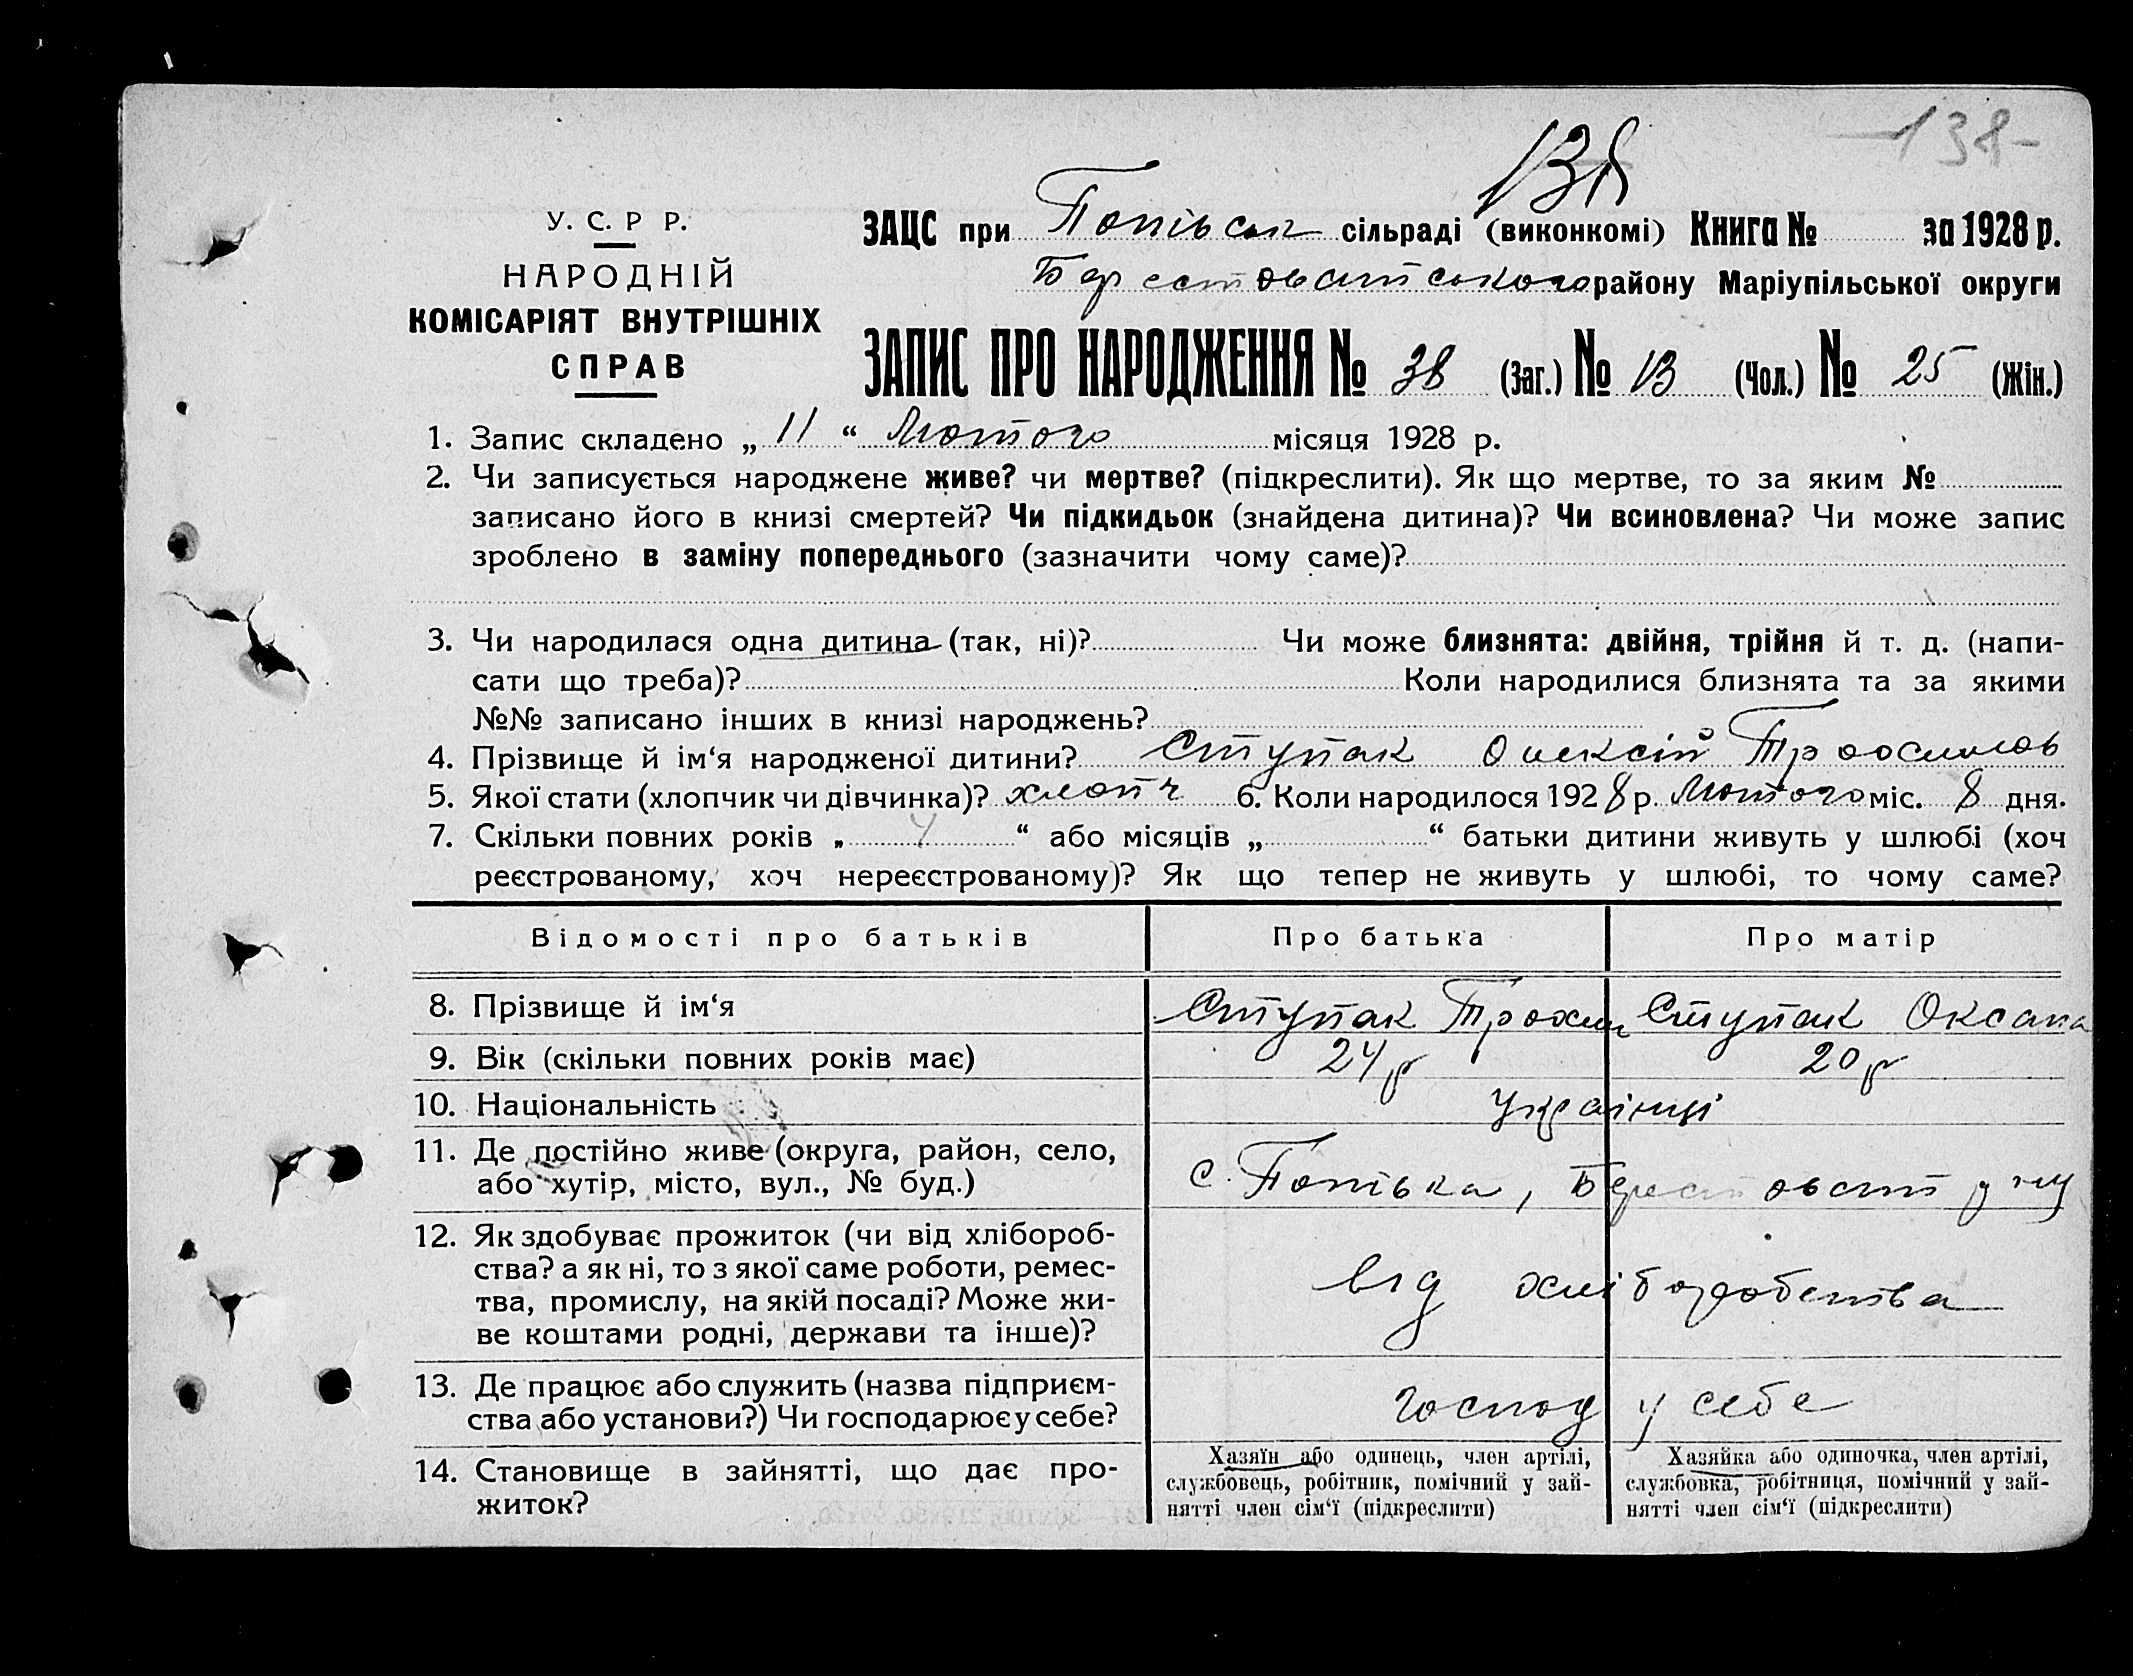 -138-
138
У. С. Р Р.
НАРОДНІЙ
КОМІСАРІЯТ ВНУТРІШНІХ
СПРАВ
ЗАЦС при Попівськ сільраді (виконкомі) Книга № за 1928 р.
Берестоватського району Маріупільської округи
ЗАПИС ПРО НАРОДЖЕННЯ № 38 (Заг.) № 13 (Чол.) № 25 (Жін.)
1. Запис складено „ 11 “ Лютого місяця 1928 р.
2. Чи записується народжене живе? чи мертве? (підкреслити). Як що мертве, то за яким №
записано його в книзі смертей? Чи підкидьок (знайдена дитина)? Чи всиновлена? Чи може запис
зроблено в заміну попереднього (зазначити чому саме)?
3. Чи народилася одна дитина (так, ні)? Чи може близнята: двійня, трійня й т. д. (напи-
сати що треба)? Коли народилися близнята та за якими
№№ записано інших в книзі народжень?
4. Прізвище й ім‘я народженої дитини? Ступак Олексій
5. Якої стати (хлопчик чи дівчинка)? хлопч 6. Коли народилося 1928 р. Лютого міс. 8 дня.
7. Скільки повних років „ 4 “ або місяців „ “ батьки дитини живуть у шлюбі (хоч
реєстрованому, хоч нереєстрованому)? Як що тепер не живуть у шлюбі, то чому саме?
Відомості про батьків Про батька Про матір
8. Прізвище й ім‘я Ступак Трохим Ступак Оксана
9. Вік (скільки повних років має) 24 р 20 р
10. Національність Українці
11. Де постійно живе (округа, район, село,
або хутір, місто, вул., № буд.) с. Попівка, Берестоват р ну
12. Як здобуває прожиток (чи від хлібороб-
ства? а як ні, то з якої саме роботи, ремес-
тва, промислу, на якій посаді? Може жи-
ве коштами родні, держави та інше)? від хліборобства
13. Де працює або служить (назва підприєм-
ства або установи?) Чи господарює у себе? господ у себе
14. Становище в зайнятті, що дає про-
житок?
Хазяїн або одинець, член артілі,
службовець, робітник, помічний у зай-
нятті член сім‘ї (підкреслити)
Хазяйка або одиночка, член артілі,
службовка, робітниця, помічний у зай-
нятті член сім‘ї (підкреслити)